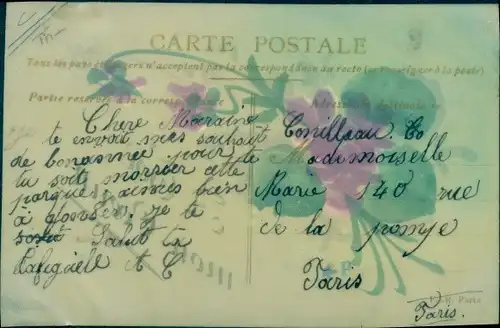 CARTE POSTALE
Tous les pays étrangers n'acceptent pas la correspondance au recto (se renseigner à la poste)
Partie réservée à la correspondance
Adresse du destinataire
Chere Maraine
te envoit mes souhait
de bonannee pour
tu soit
parque t'aimes bien
je te
Salut ta
A C
Conilleau Co
Mademoiselle
Marie 140 rue
de la pompe
Paris
Paris
Paris.